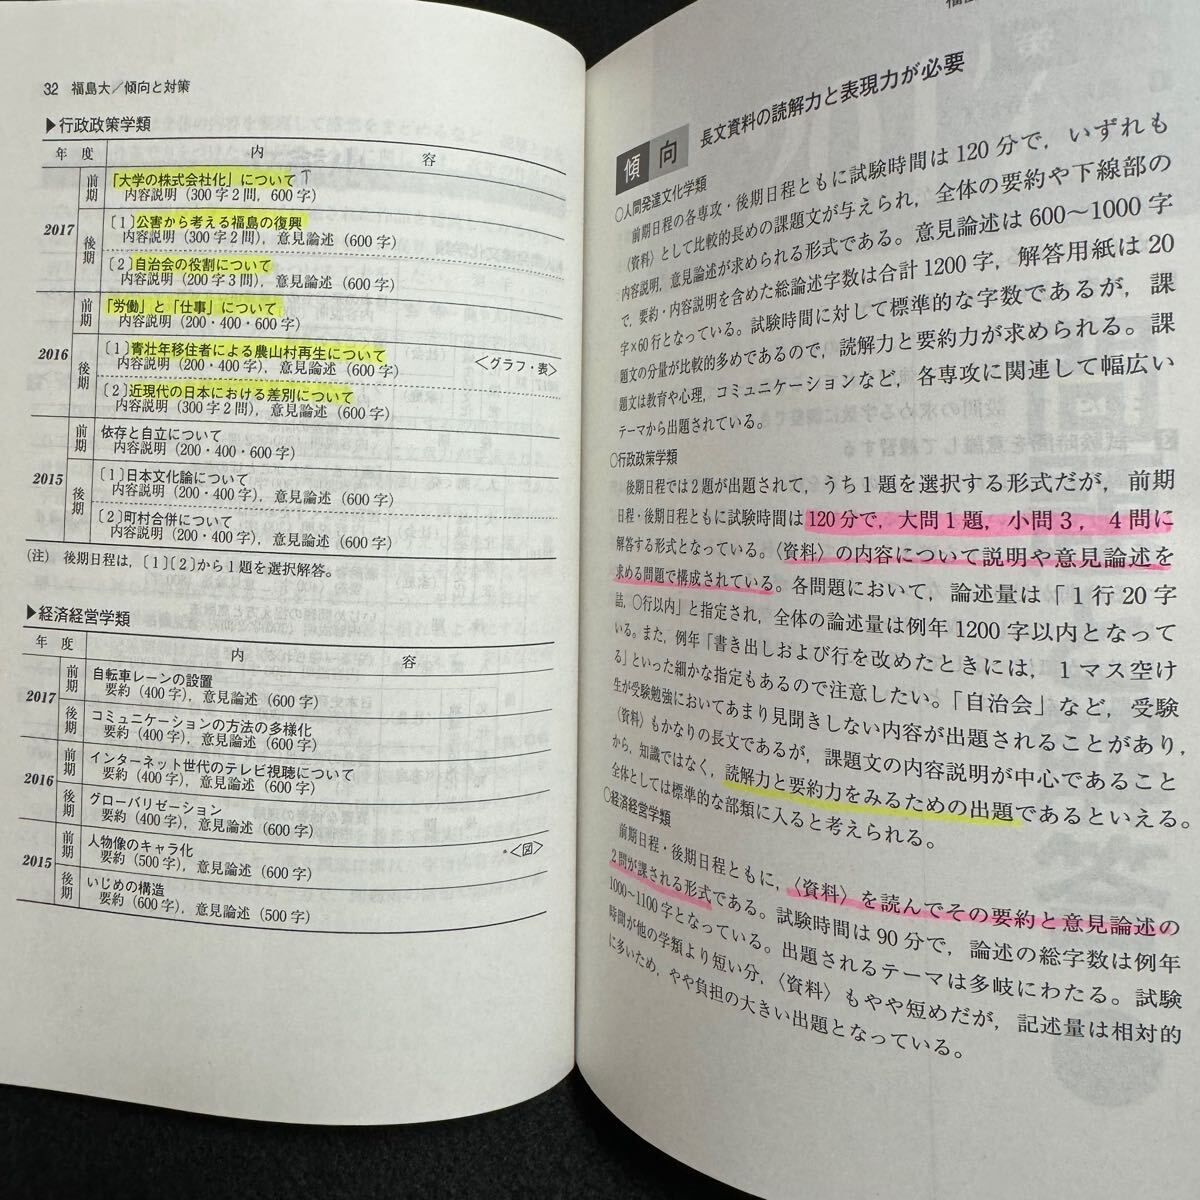 32 福島大／傾向と対策
▶行政政策学類
年 度 内 容
2017 前期 「大学の株式会社化」について
内容説明(300字2問, 600字)
後期 〔1〕公害から考える福島の復興
内容説明(300字2問), 意見論述(600字)
〔2〕自治会の役割について
内容説明(200字3問), 意見論述(600字)
2016 前期 「労働」と「仕事」について
内容説明(200・400・600字)
後期 〔1〕青壮年移住者による農山村再生について
内容説明(200・400字), 意見論述(600字) <グラフ・表>
〔2〕近現代の日本における差別について
内容説明(300字2問), 意見論述(600字)
2015 前期 依存と自立について
内容説明(200・400・600字)
後期 〔1〕日本文化論について
内容説明(200・400字), 意見論述(600字)
〔2〕町村合併について
内容説明(200・400字), 意見論述(600字)
(注) 後期日程は,〔1〕〔2〕から1題を選択解答。
▶経済経営学類
年 度 内 容
2017 前期 自転車レーンの設置
要約(400字), 意見論述(600字)
後期 コミュニケーションの方法の多様化
要約(400字), 意見論述(600字)
2016 前期 インターネット世代のテレビ視聴について
要約(400字), 意見論述(600字)
後期 グローバリゼーション
要約(400字), 意見論述(600字)
2015 前期 人物像のキャラ化
要約(500字), 意見論述(600字) <図>
後期 いじめの構造
要約(600字), 意見論述(500字)
傾向 長文資料の読解力と表現力が必要
○人間発達文化学類
前期日程の各専攻・後期日程ともに試験時間は120分で，いずれも
〈資料〉として比較的長めの課題文が与えられ，全体の要約や下線部の
内容説明，意見論述が求められる形式である。意見論述は600〜1000字
で，要約・内容説明を含めた総論述字数は合計1200字，解答用紙は20
字×60行となっている。試験時間に対して標準的な字数であるが，課
題文の分量が比較的多めであるので，読解力と要約力が求められる。課
題文は教育や心理，コミュニケーションなど，各専攻に関連して幅広い
テーマから出題されている。
○行政政策学類
後期日程では2題が出題されて，うち1題を選択する形式だが，前期
日程・後期日程ともに試験時間は120分で，大問1題，小問3，4問に
解答する形式となっている。〈資料〉の内容について説明や意見論述を
求める問題で構成されている。各問題において，論述量は「1行20字
詰，○行以内」と指定され，全体の論述量は例年1200字以内となって
いる。また，例年「書き出しおよび行を改めたときには，1マス空け
る」といった細かな指定もあるので注意したい。「自治会」など，受験
生が受験勉強においてあまり見聞きしない内容が出題されることがあり，
〈資料〉もかなりの長文であるが，課題文の内容説明が中心であること
から，知識ではなく，読解力と要約力をみるための出題であるといえる。
全体としては標準的な部類に入ると考えられる。
○経済経営学類
前期日程・後期日程ともに，〈資料〉を読んでその要約と意見論述の
2問が課される形式である。試験時間は90分で，論述の総字数は例年
1000〜1100字となっている。出題されるテーマは多岐にわたる。試験
時間が他の学類より短い分，〈資料〉もやや短めだが，記述量は相対的
に多いため，やや負担の大きい出題となっている。